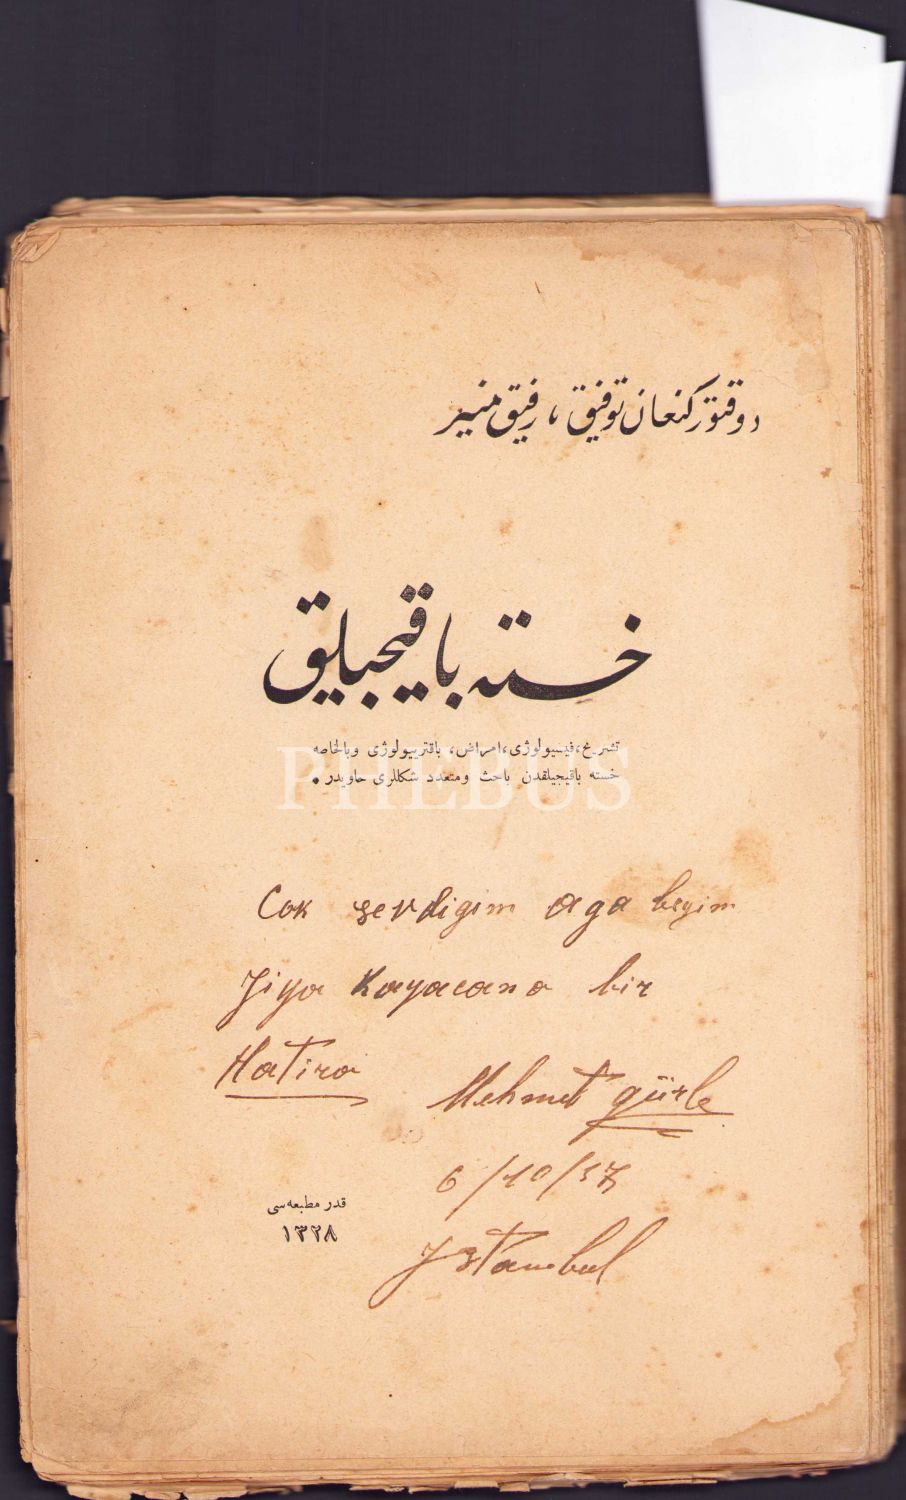 دوقتور كنعان توفيق ، رفيق منير
خسته باقيجيلق
تشريح ، فيسيولوژى ، امراض ، باقتريولوژى وبالخاصه
خسته باقيجيلقدن باحث ومتعدد شكللرى حاويدر .
PHEBUS
Cok sevdigim aga beyim
Ziya Kayacana bir
Hatira
Mehmet gürle
6/10/57
Istanbul
قدر مطبعه‌سى
١٣٢٨